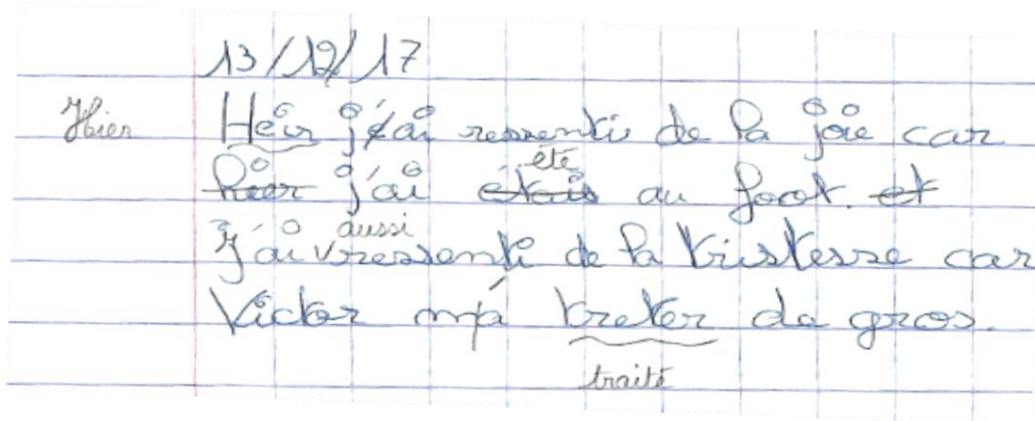 13/12/17
Hier Heir j'ai ressenti de la joie car
été
hier j'ai étais au foot. et
aussi
J'ai ressenti de la tristesse car
Victor m'a treter de gros.
traité